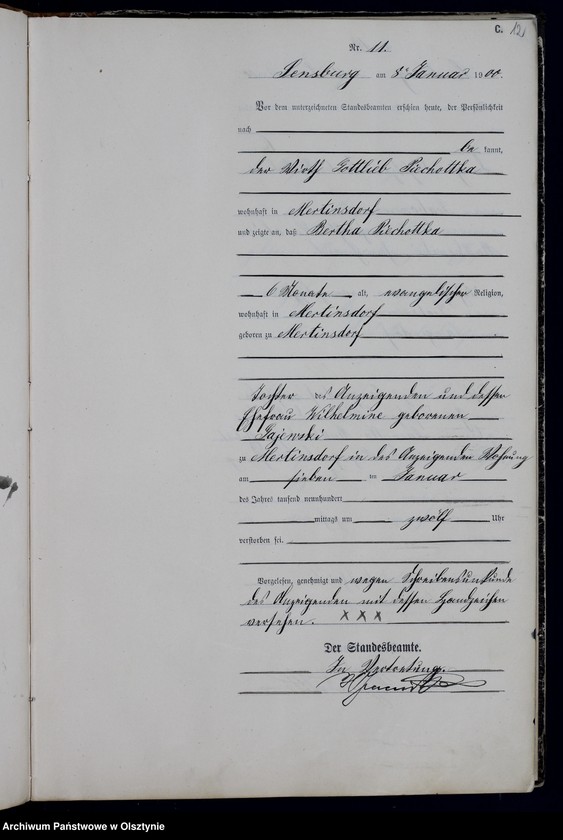 C. 12
Nr. 11.
Sensburg am 8. Januar 1900.
Vor dem unterzeichneten Standesbeamten erschien heute, der Persönlichkeit
nach
be kannt,
der Wirth Gottlieb Piechottka
wohnhaft in Mertinsdorf
und zeigte an, daß Bertha Piechottka
6 Monate alt, evangelischer Religion,
wohnhaft in Mertinsdorf
geboren zu Mertinsdorf
Tochter des Anzeigenden und dessen
Ehefrau Wilhelmine geborenen
Gajewski
zu Mertinsdorf in des Anzeigenden Wohnung
am sieben ten Januar
des Jahres tausend neunhundert
mittags um zwölf Uhr
verstorben sei.
Vorgelesen, genehmigt und wegen Schreibensunkunde
des Anzeigenden mit dessen Handzeichen
versehen. X X X
Der Standesbeamte.
In Vertretung.
Archiwum Państwowe w Olsztynie